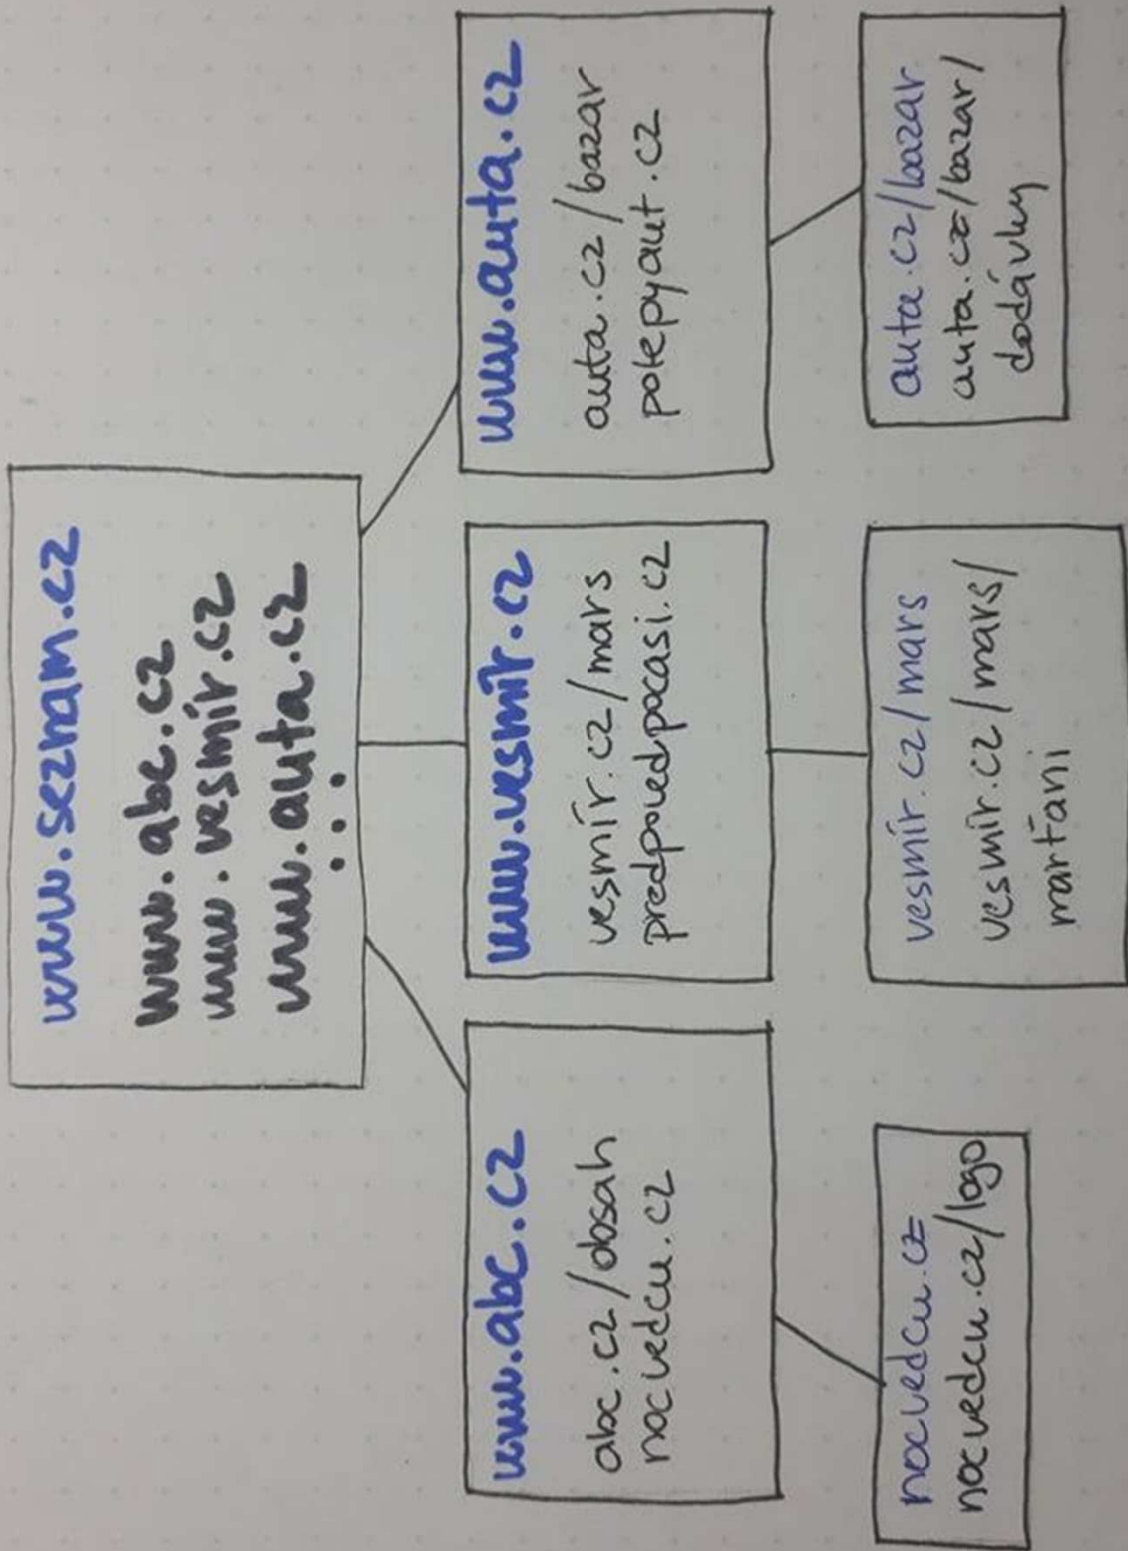 www.seznam.cz
www.abc.cz
www.vesmír.cz
www.auta.cz
...
www.abc.cz
abc.cz/obsah
nocvedcu.cz
www.vesmír.cz
vesmír.cz/mars
predpovedpocasi.cz
www.auta.cz
auta.cz/bazar
polepyaut.cz
nocvedcu.cz
nocvedcu.cz/logo
vesmír.cz/mars
vesmír.cz/mars/
marťani
auta.cz/bazar
auta.cz/bazar/
dodávky